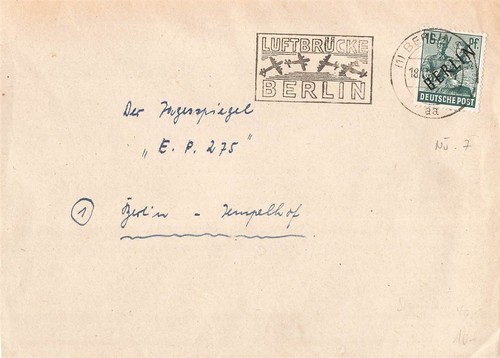 LUFTBRÜCKE
BERLIN
(1) BERLIN
18
aa
16 PF.
BERLIN
DEUTSCHE POST
Der Tagesspiegel
„E. P. 275"
Nü. 7
① Berlin - Tempelhof
10-